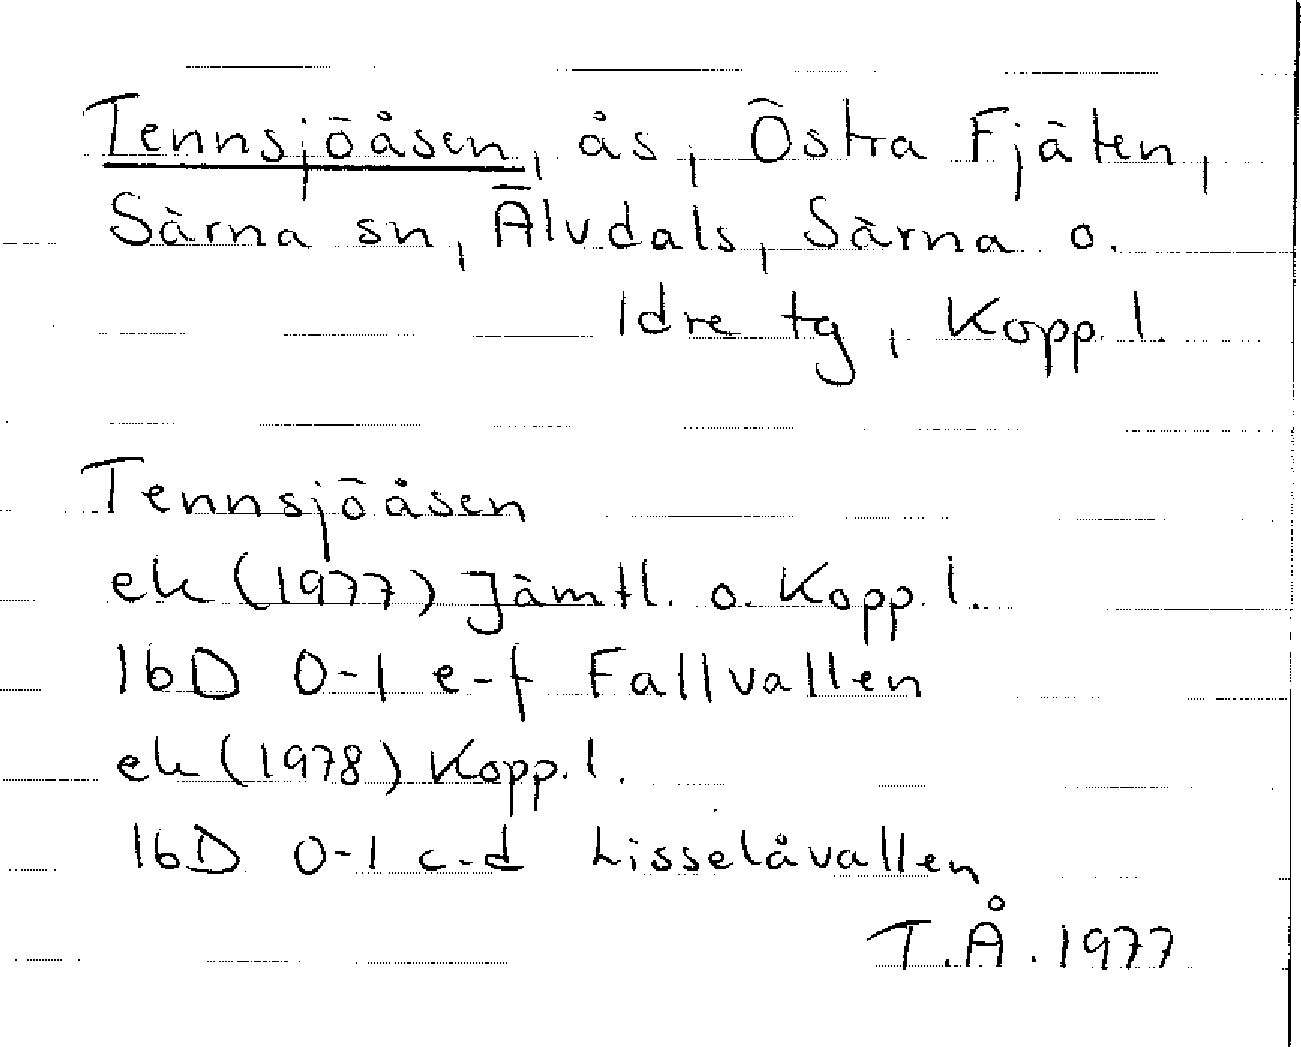 Tennsjöåsen, ås, Östra Fjäten,
Särna sn, Älvdals, Särna o.
Idre tg, Kopp. l.
Tennsjöåsen
ek (1977) Jämtl. o. Kopp. l.
16D 0-1 e-f Fallvallen
ek (1978) Kopp. l.
16D 0-1 c-d Lisselåvallen
T.Å. 1977